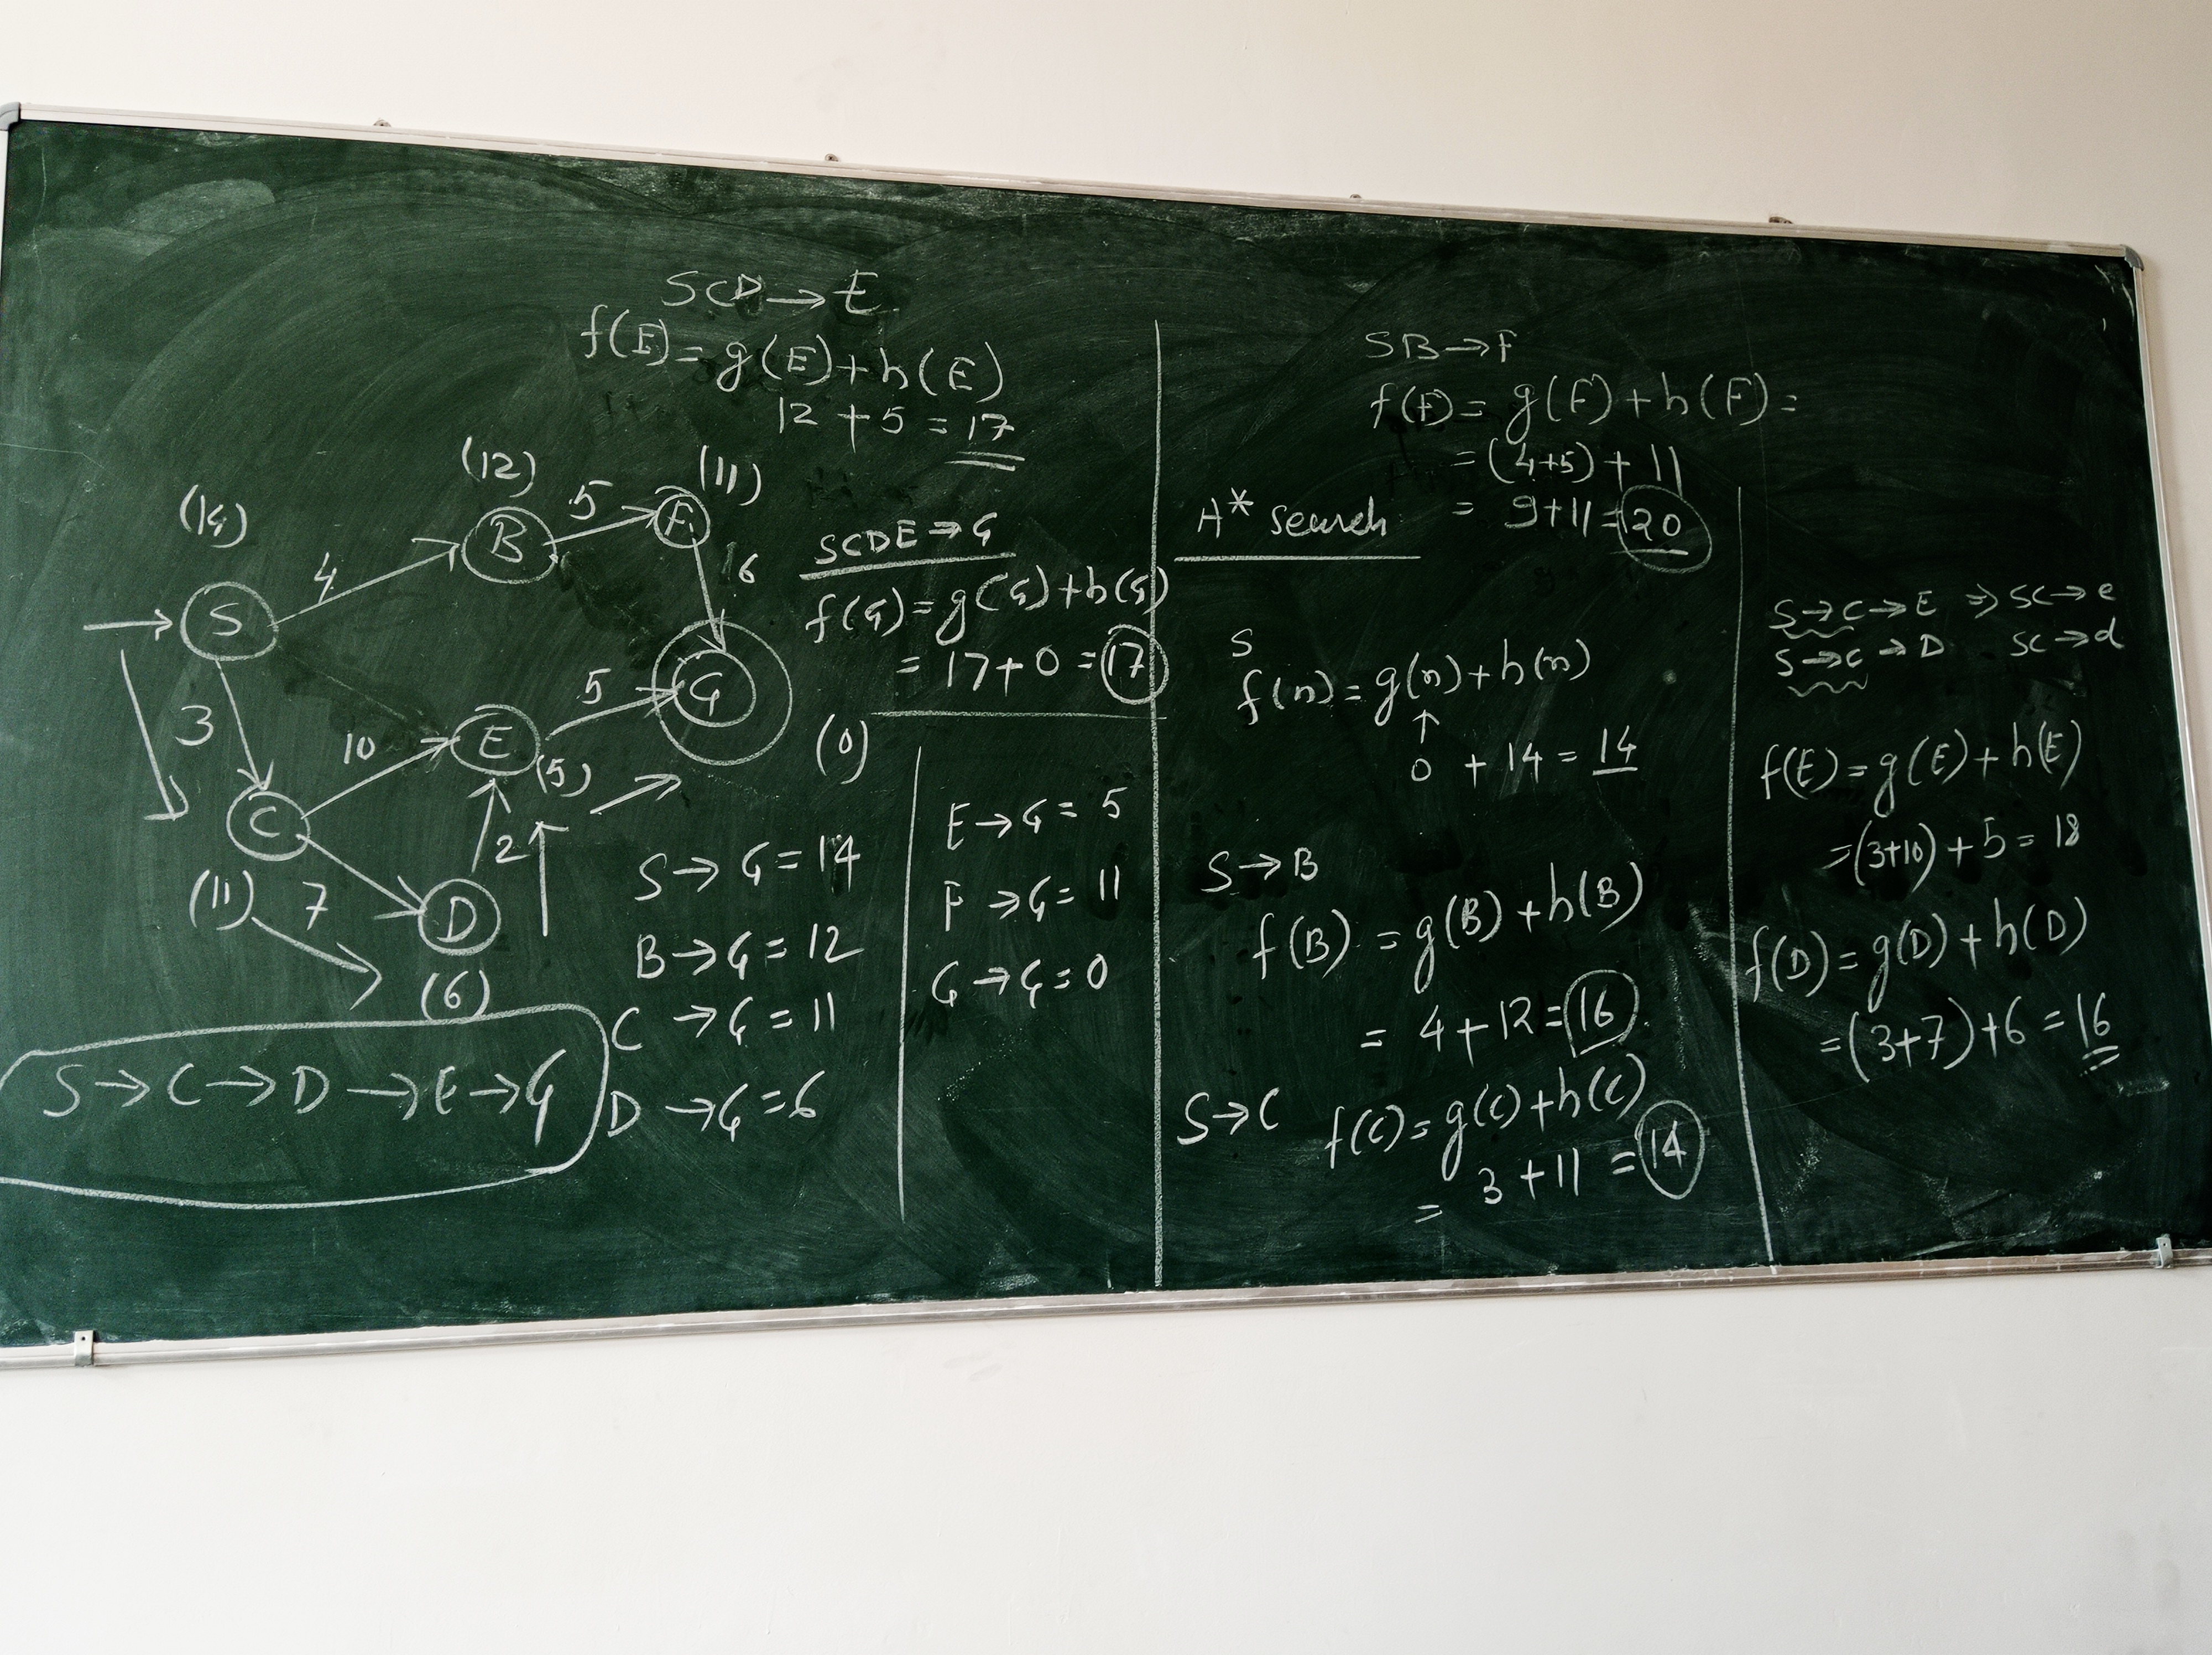 SCD → E
f(E) = g(E) + h(E)
12 + 5 = 17
(14)
(12)
(11)
S
4
B
5
F
16
3
C
(11)
10
E
(5)
5
G
(0)
7
D
(6)
2
SCDE → G
f(G) = g(G) + h(G)
= 17 + 0 = 17
S → G = 14
B → G = 12
C → G = 11
D → G = 6
E → G = 5
F → G = 11
G → G = 0
S → C → D → E → G
SB → F
f(F) = g(F) + h(F) =
= (4+5) + 11
= 9 + 11 = 20
A* search
S
f(n) = g(n) + h(n)
↑
0 + 14 = 14
S → B
f(B) = g(B) + h(B)
= 4 + 12 = 16
S → C
f(C) = g(C) + h(C)
= 3 + 11 = 14
S → C → E ⇒ SC → e
S → C → D SC → d
f(E) = g(E) + h(E)
= (3+10) + 5 = 18
f(D) = g(D) + h(D)
= (3+7) + 6 = 16